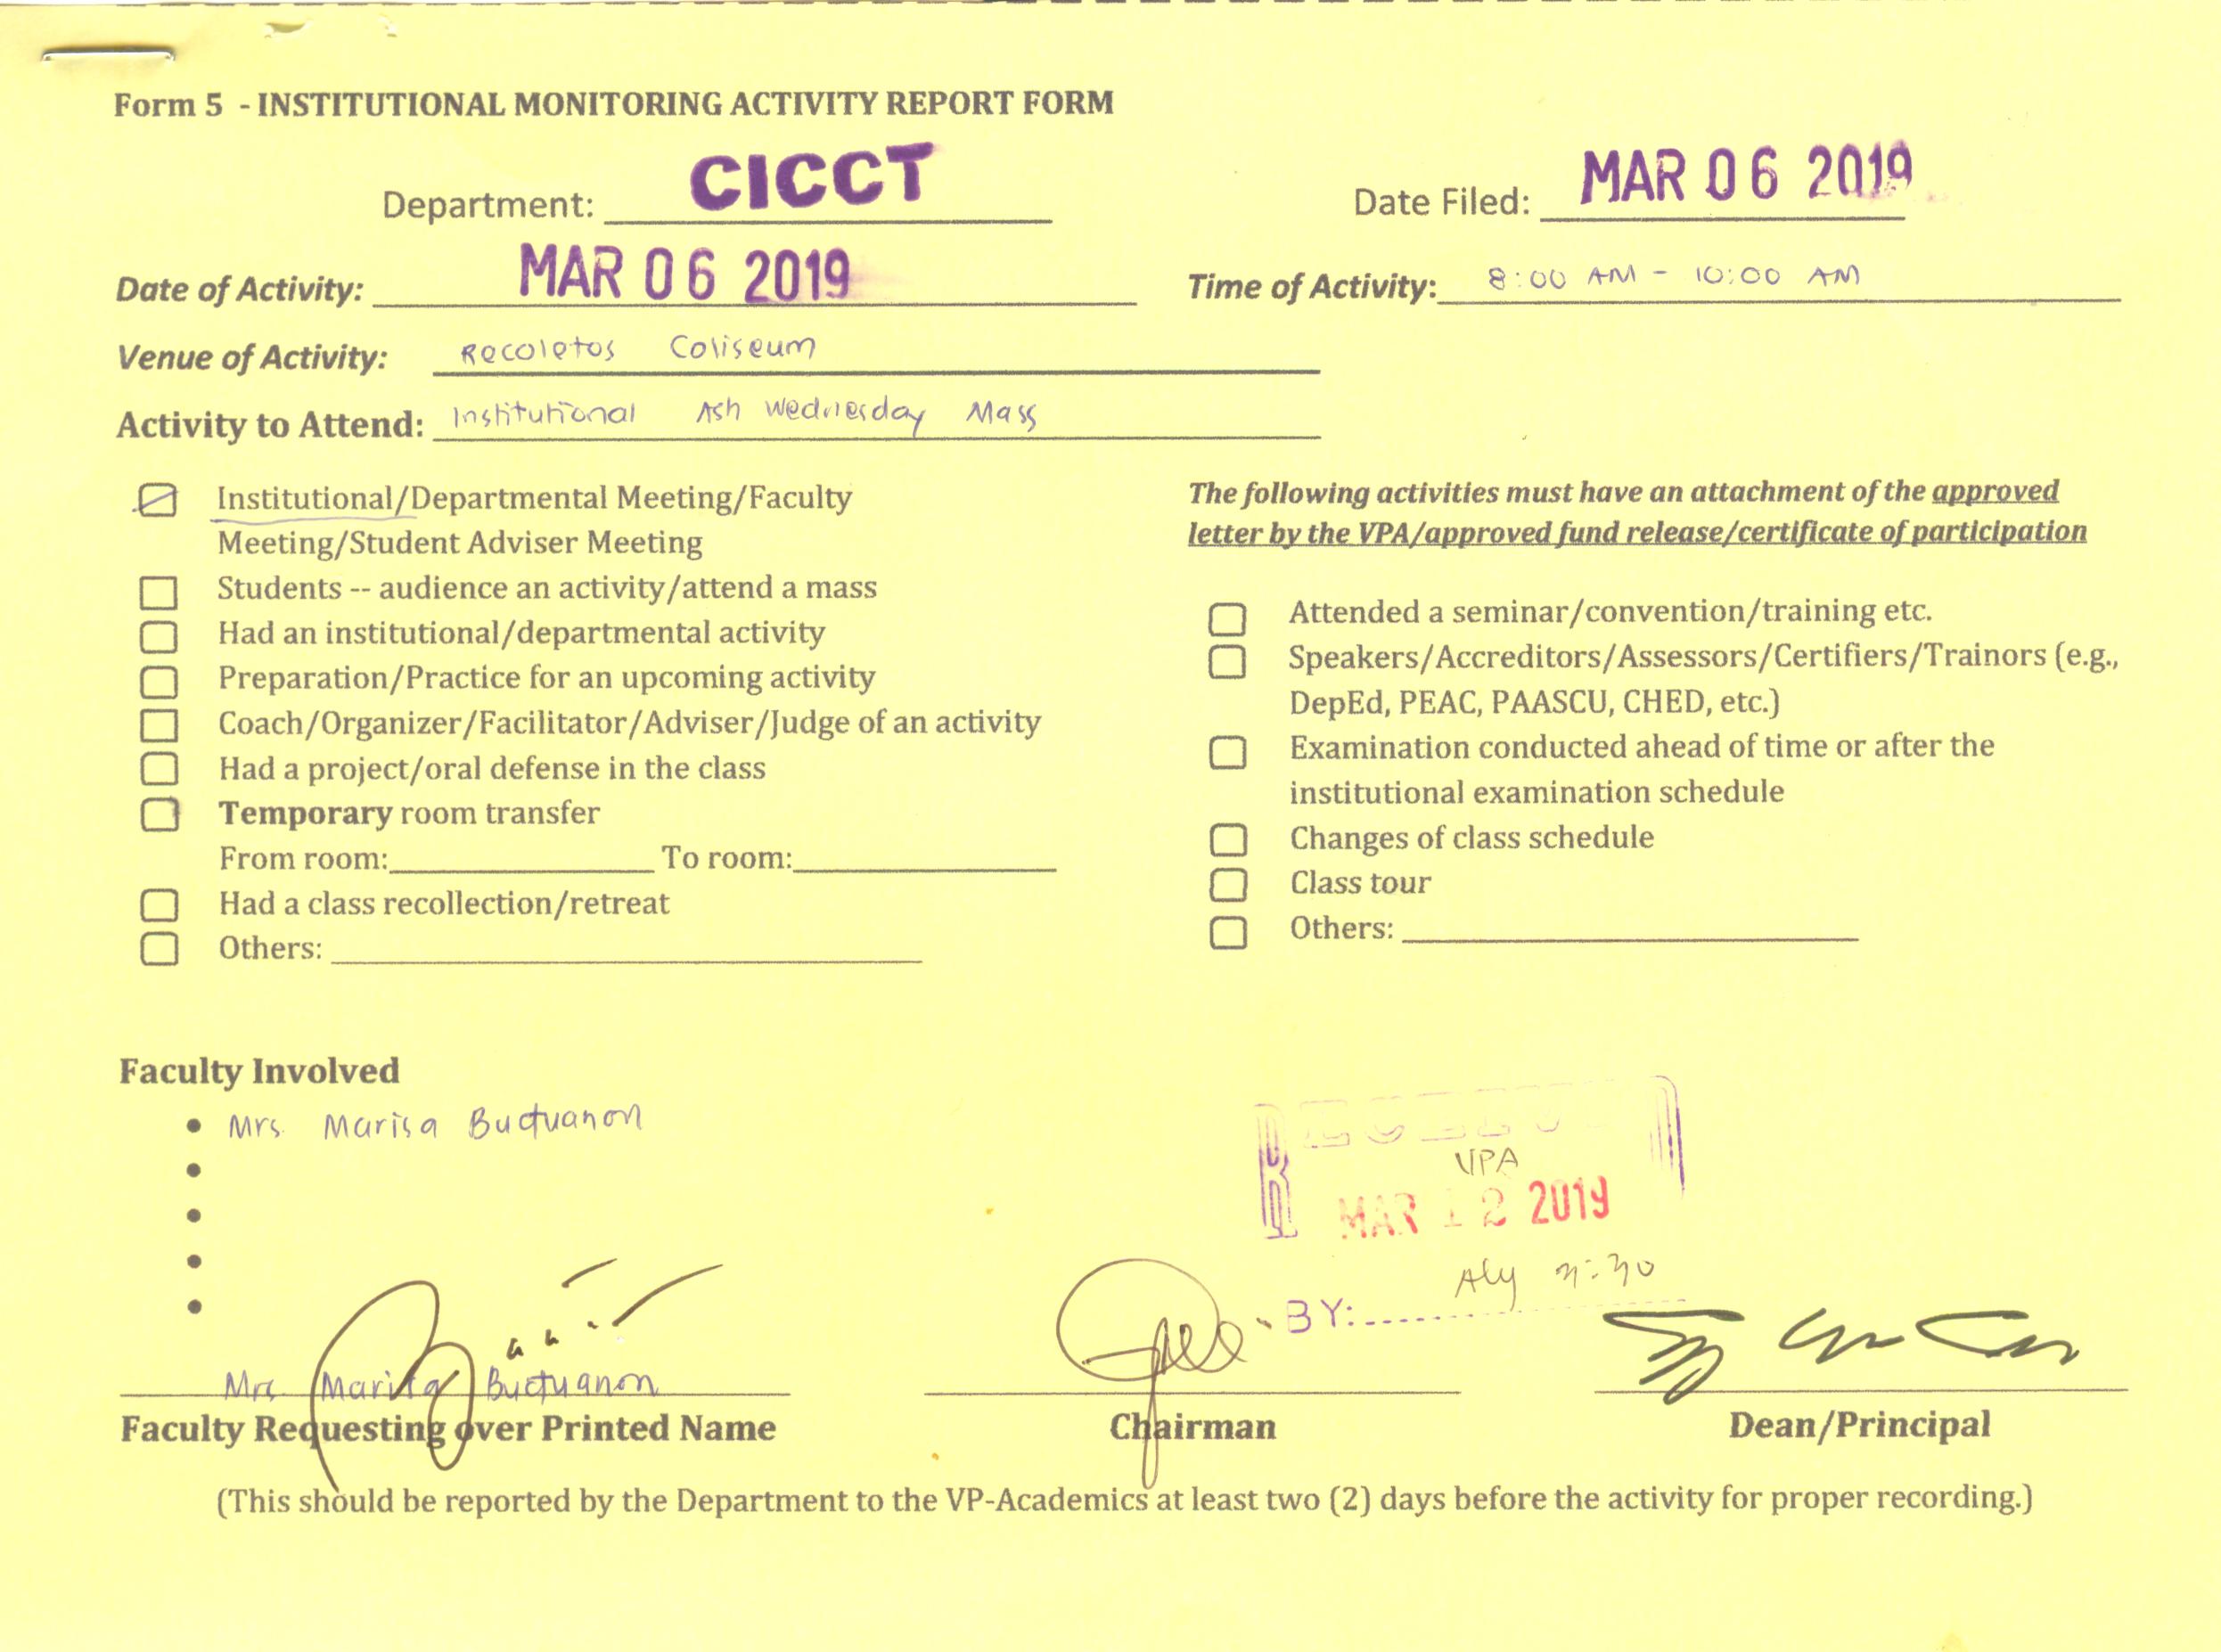 Form 5 - INSTITUTIONAL MONITORING ACTIVITY REPORT FORM
Department: CICCT
Date Filed: MAR 06 2019
Date of Activity: MAR 06 2019
Time of Activity: 8:00 AM - 10:00 AM
Venue of Activity: Recoletos Coliseum
Activity to Attend: Institutional Ash Wednesday Mass
Institutional/Departmental Meeting/Faculty
Meeting/Student Adviser Meeting
Students -- audience an activity/attend a mass
Had an institutional/departmental activity
Preparation/Practice for an upcoming activity
Coach/Organizer/Facilitator/Adviser/Judge of an activity
Had a project/oral defense in the class
Temporary room transfer
From room: To room:
Had a class recollection/retreat
Others:
The following activities must have an attachment of the approved
letter by the VPA/approved fund release/certificate of participation
Attended a seminar/convention/training etc.
Speakers/Accreditors/Assessors/Certifiers/Trainors (e.g.,
DepEd, PEAC, PAASCU, CHED, etc.)
Examination conducted ahead of time or after the
institutional examination schedule
Changes of class schedule
Class tour
Others:
Faculty Involved
• Mrs. Marisa Buctuanon
•
•
•
•
VPA
MAR 12 2019
Aly
BY:
Mrs. Marisa Buctuanon
Faculty Requesting over Printed Name
Chairman
Dean/Principal
(This should be reported by the Department to the VP-Academics at least two (2) days before the activity for proper recording.)